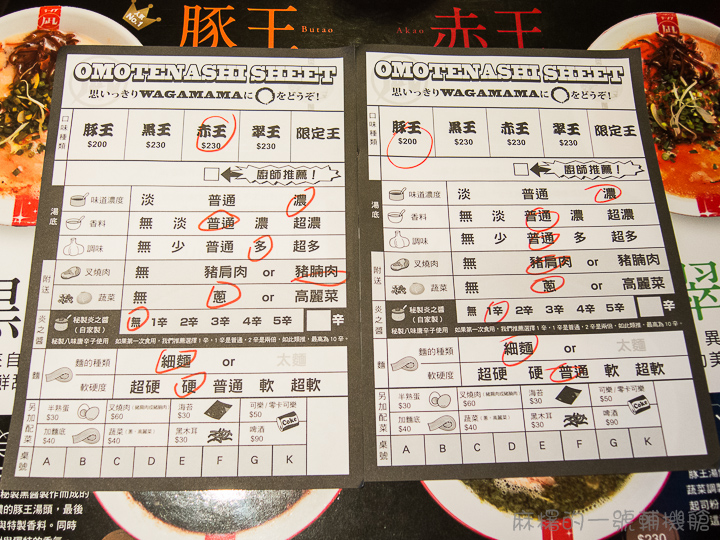 豚王 Butao
赤王 Akao
OMOTENASHI SHEET
思いっきりWAGAMAMAに○をどうぞ!
口味種類 豚王 $200 黒王 $230 赤王 $230 翠王 $230 限定王
廚師推薦!
湯底
味道濃度 淡 普通 濃
香料 無 淡 普通 濃 超濃
調味 無 少 普通 多 超多
附送
叉燒肉 無 豬肩肉 or 豬腩肉
蔬菜 無 蔥 or 高麗菜
炎之醬
秘製炎之醬(自家製) 無 1辛 2辛 3辛 4辛 5辛 辛
秘製八味唐辛子使用 如果第一次食用,我們推薦選擇1辛,1辛是普通,2辛是兩倍,如此類推,最高為10辛。
麵
麵的種類 細麵 or 太麵
軟硬度 超硬 硬 普通 軟 超軟
另加配菜
半熟蛋 $30 叉燒肉 $60 海苔 $30 可樂/零卡可樂 $50
加麵底 $40 蔬菜(蔥、高麗菜) $40 黑木耳 $30 啤酒 $90
Coke
桌號 A B C D E F G K
OMOTENASHI SHEET
思いっきりWAGAMAMAに○をどうぞ!
口味種類 豚王 $200 黒王 $230 赤王 $230 翠王 $230 限定王
廚師推薦!
湯底
味道濃度 淡 普通 濃
香料 無 淡 普通 濃 超濃
調味 無 少 普通 多 超多
附送
叉燒肉 無 豬肩肉 or 豬腩肉
蔬菜 無 蔥 or 高麗菜
炎之醬
秘製炎之醬(自家製) 無 1辛 2辛 3辛 4辛 5辛 辛
秘製八味唐辛子使用 如果第一次食用,我們推薦選擇1辛,1辛是普通,2辛是兩倍,如此類推,最高為10辛。
麵
麵的種類 細麵 or 太麵
軟硬度 超硬 硬 普通 軟 超軟
另加配菜
半熟蛋 $30 叉燒肉 $60 海苔 $30 可樂/零卡可樂 $50
加麵底 $40 蔬菜(蔥、高麗菜) $40 黑木耳 $30 啤酒 $90
Coke
桌號 A B C D E F G K
的豚王湯頭,最後
與特製香料。同時
$230
麻糬的一號輔機艙